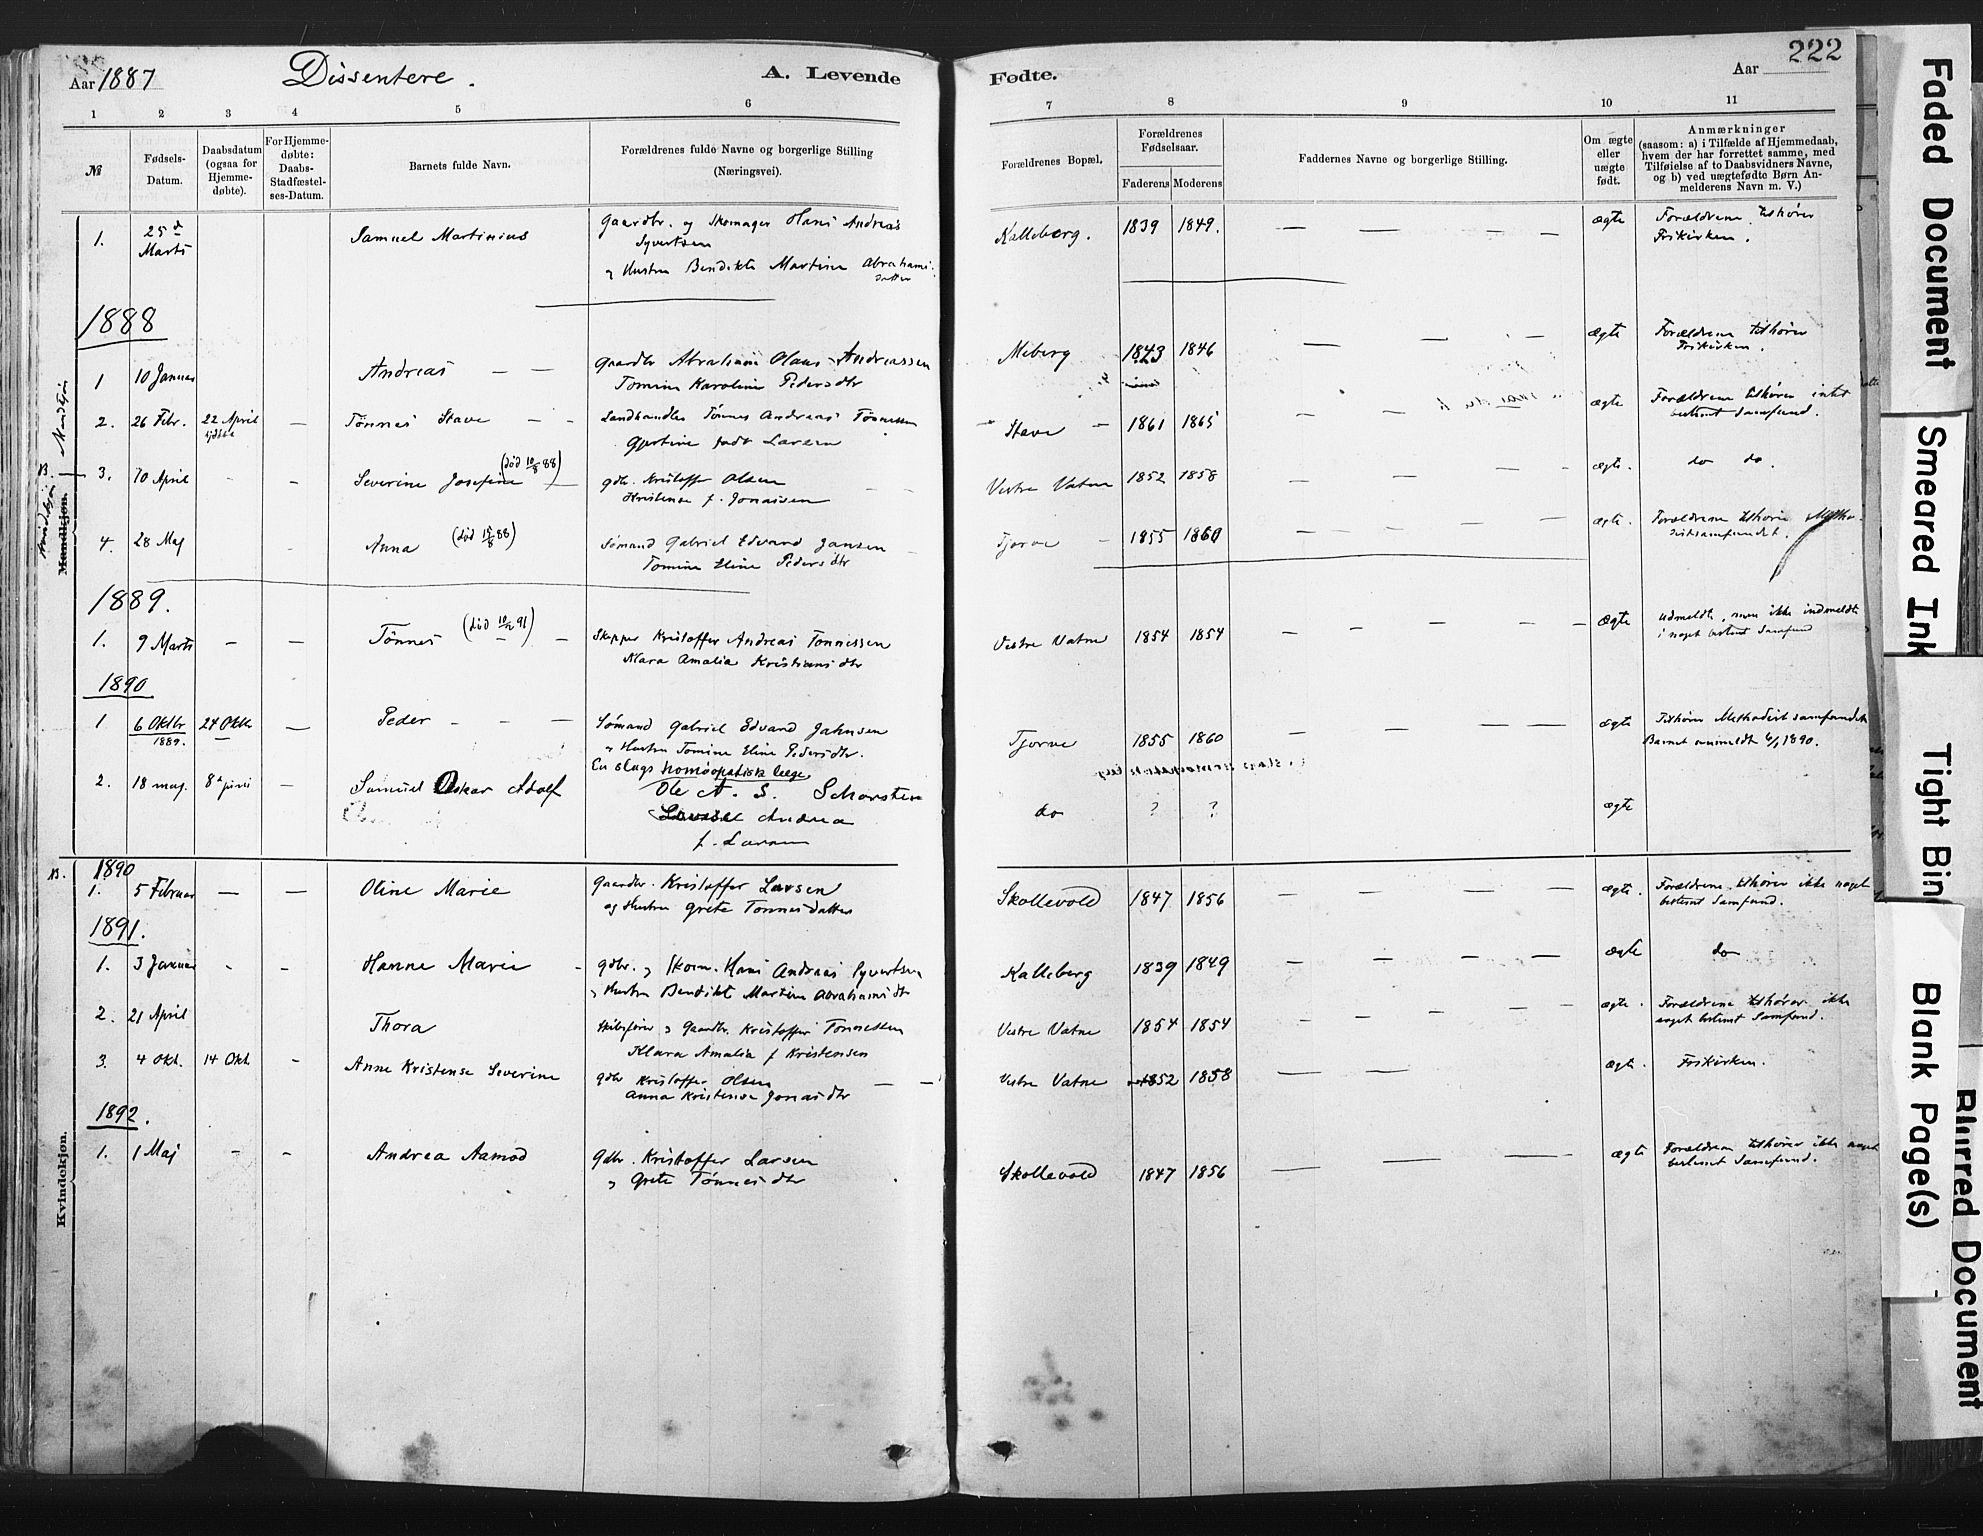 Aar 1887 Dissentere. A. Levende Fødte. Aar 222
1 2 3 4 5 6 7 8 9 10 11
№
Fødsels-Datum.
Daabsdatum (ogsaa for Hjemme-døbte).
For Hjemme-døbte: Daabs-Stadfæstel-ses-Datum.
Barnets fulde Navn.
Forældrenes fulde Navne og borgerlige Stilling (Næringsvei).
Forældrenes Bopæl.
Forældrenes Fødselsaar.
Faderens Moderens
Faddernes Navne og borgerlige Stilling.
Om ægte eller uægte født.
Anmærkninger
(saasom: a) i Tilfælde af Hjemmedaab, hvem der har forrettet samme, med Tilføielse af to Daabsvidners Navne, og b) ved uægtefødte Børn An-melderens Navn m. V.)
1. 25d Marts Samuel Martinius Gaardbr. og Skomager Hans Andreas Kalleberg. 1839 1849. — — — — ægte Forældrene tilhører
Syvertsen Frikirken.
og Hustru Bendikte Martine Abrahams-
datter
1888
1 10 Januar Andreas — — Gaardbr Abraham Olaus Andreassen Meberg 1843 1846 — — — — ægte Forældrene tilhører
Tomine Karoline Pedersdtr Frikirken.
2. 26 Febr. 22 April — Tønnes Stave — — Landhandler Tønnes Andreas Tønnessen Stave — 1861 1865 — — — — ægte Forældrene tilhører intet
Gjertine født Larsen bestemt Samfund.
B.
Mandkjøn
Mandkjøn.
Kvindekjøn
3. 10 April - - Severine Josefine (død 10/8 88) gdb. Kristoffer Olsen Vestre Vatne 1852 1858 — — — — ægte. do do.
Kristense f. Jonassen
4. 28 Maj - Anna (død 15/8 88) Sømand Gabriel Edvard Jansen Tjorve - 1855 1860 — — — — ægte. Forældrene tilhører Metho-
Tomine Eline Pedersdtr distsamfundet.
1889.
1. 9 Marts — — Tønnes (død 91) — — Skipper Kristoffer Andreas Tønnessen Vestre Vatne 1854 1854 — — — — ægte udmeldt, men ikke indmeldte
Klara Amalia Kristiansdtr i noget bestemt Samfund
1890
1 6 Oktbr 1889. 24 Oktbr — Peder - - — Sømand Gabriel Edvard Jahnsen Tjorve 1855 1860 — — — — ægte Tilhører Methodistsamfundet
og Hustru Tomine Eline Pedersdtr. Barnet anmeldt 6/1 1890.
En slags homøopatisk læge
2. 18 maj. 8d juni — Samuel Oskar Adolf Ole A. S. Schorsten do ? ? ægte
Andrea
f. Larsen
B.
1890
1. 5 Februar — — Oline Marie Gaardbr. Kristoffer Larsen Skollevold 1847 1856 — — — — ægte. Forældrene tilhører ikke noget
og Hustru Grete Tønnesdatter bestemt Samfund.
1891.
1. 3 Januar - - Hanne Marie - gdbr. og Skom. Hans Andreas Syvertsen Kalleberg 1839 1849 — — — — ægte do
og Hustru Bendikt Martine Abrahamsdtr
2. 21 April Thora Skibsfører og Gaardbr. Kristoffer Tønnessen Vestre Vatne 1854 1854 — — — — ægte. Forældrene tilhører ikke
Klara Amalia f Kristensen noget bestemt Samfund.
3. 4 Okt. 14 Okt. - Anne Kristense Severine gdbr Kristoffer Olsen — — Vestre Vatne 1852 1858 — — ægte. Frikirken.
Anna Kristense Jonasdtr
1892.
1. 1 Maj - - Andrea Aamod gdbr. Kristoffer Larsen Skollevold 1847 1856 — — — ægte Forældrene tilhører ikke noget
og Grete Tønnesdtr bestemt Samfund.
Kvindekjøn.
Faded Document
Smeared Ink
Tight Bin
Blank Page(s)
Blurred Document